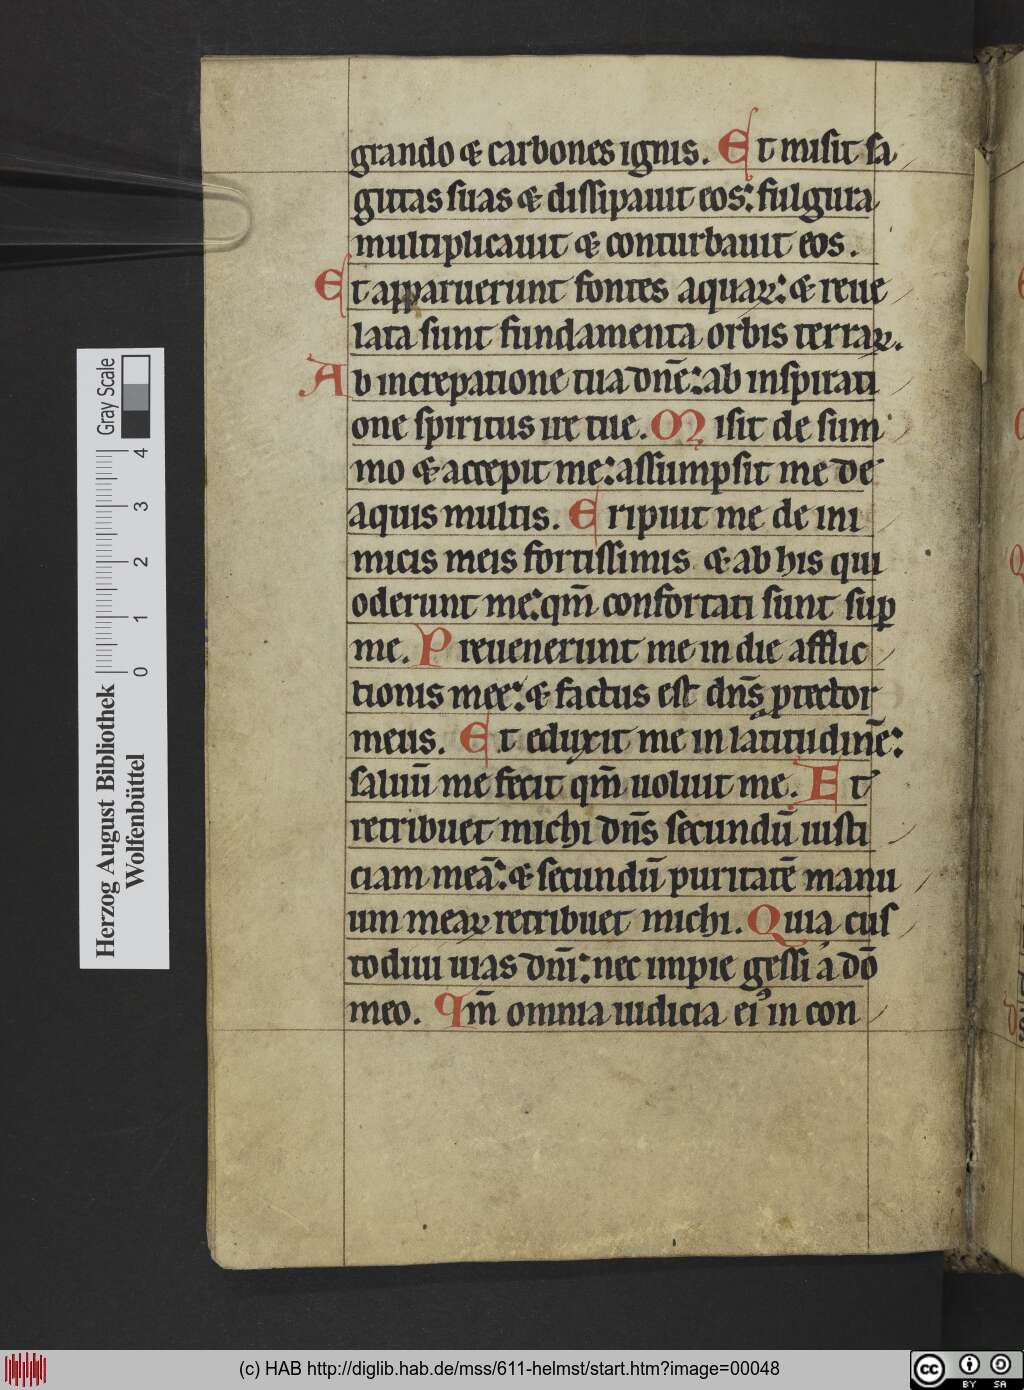 grando & carbones ignis. Et misit sa
gittas suas & dissipauit eos: fulgura
multiplicauit & conturbauit eos.
Et apparuerunt fontes aquaꝝ: & reue
lata sunt fundamenta orbis terraꝝ.
Ab increpatione tua dn̄e: ab inspirati
one spiritus ire tue. Misit de sum
mo & accepit me: assumpsit me de
aquis multis. Eripuit me de ini
micis meis fortissimis & ab his qui
oderunt me: qm̄ confortati sunt suꝑ
me. Preuenerunt me in die afflic
tionis mee: & factus est dn̄s ꝓtector
meus. Et eduxit me in latitudinē:
saluū me fecit qm̄ uoluit me. Et
retribuet michi dn̄s secundū iusti
ciam meā: & secundū puritatē manu
um meaꝝ retribuet michi. Quia cus
todiui uias dn̄i: nec impie gessi a dō
meo. Qm̄ omnia iudicia eiꝰ in con
Gray Scale
4
3
2
1
0
Herzog August Bibliothek
Wolfenbüttel
(c) HAB http://diglib.hab.de/mss/611-helmst/start.htm?image=00048
cc BY SA